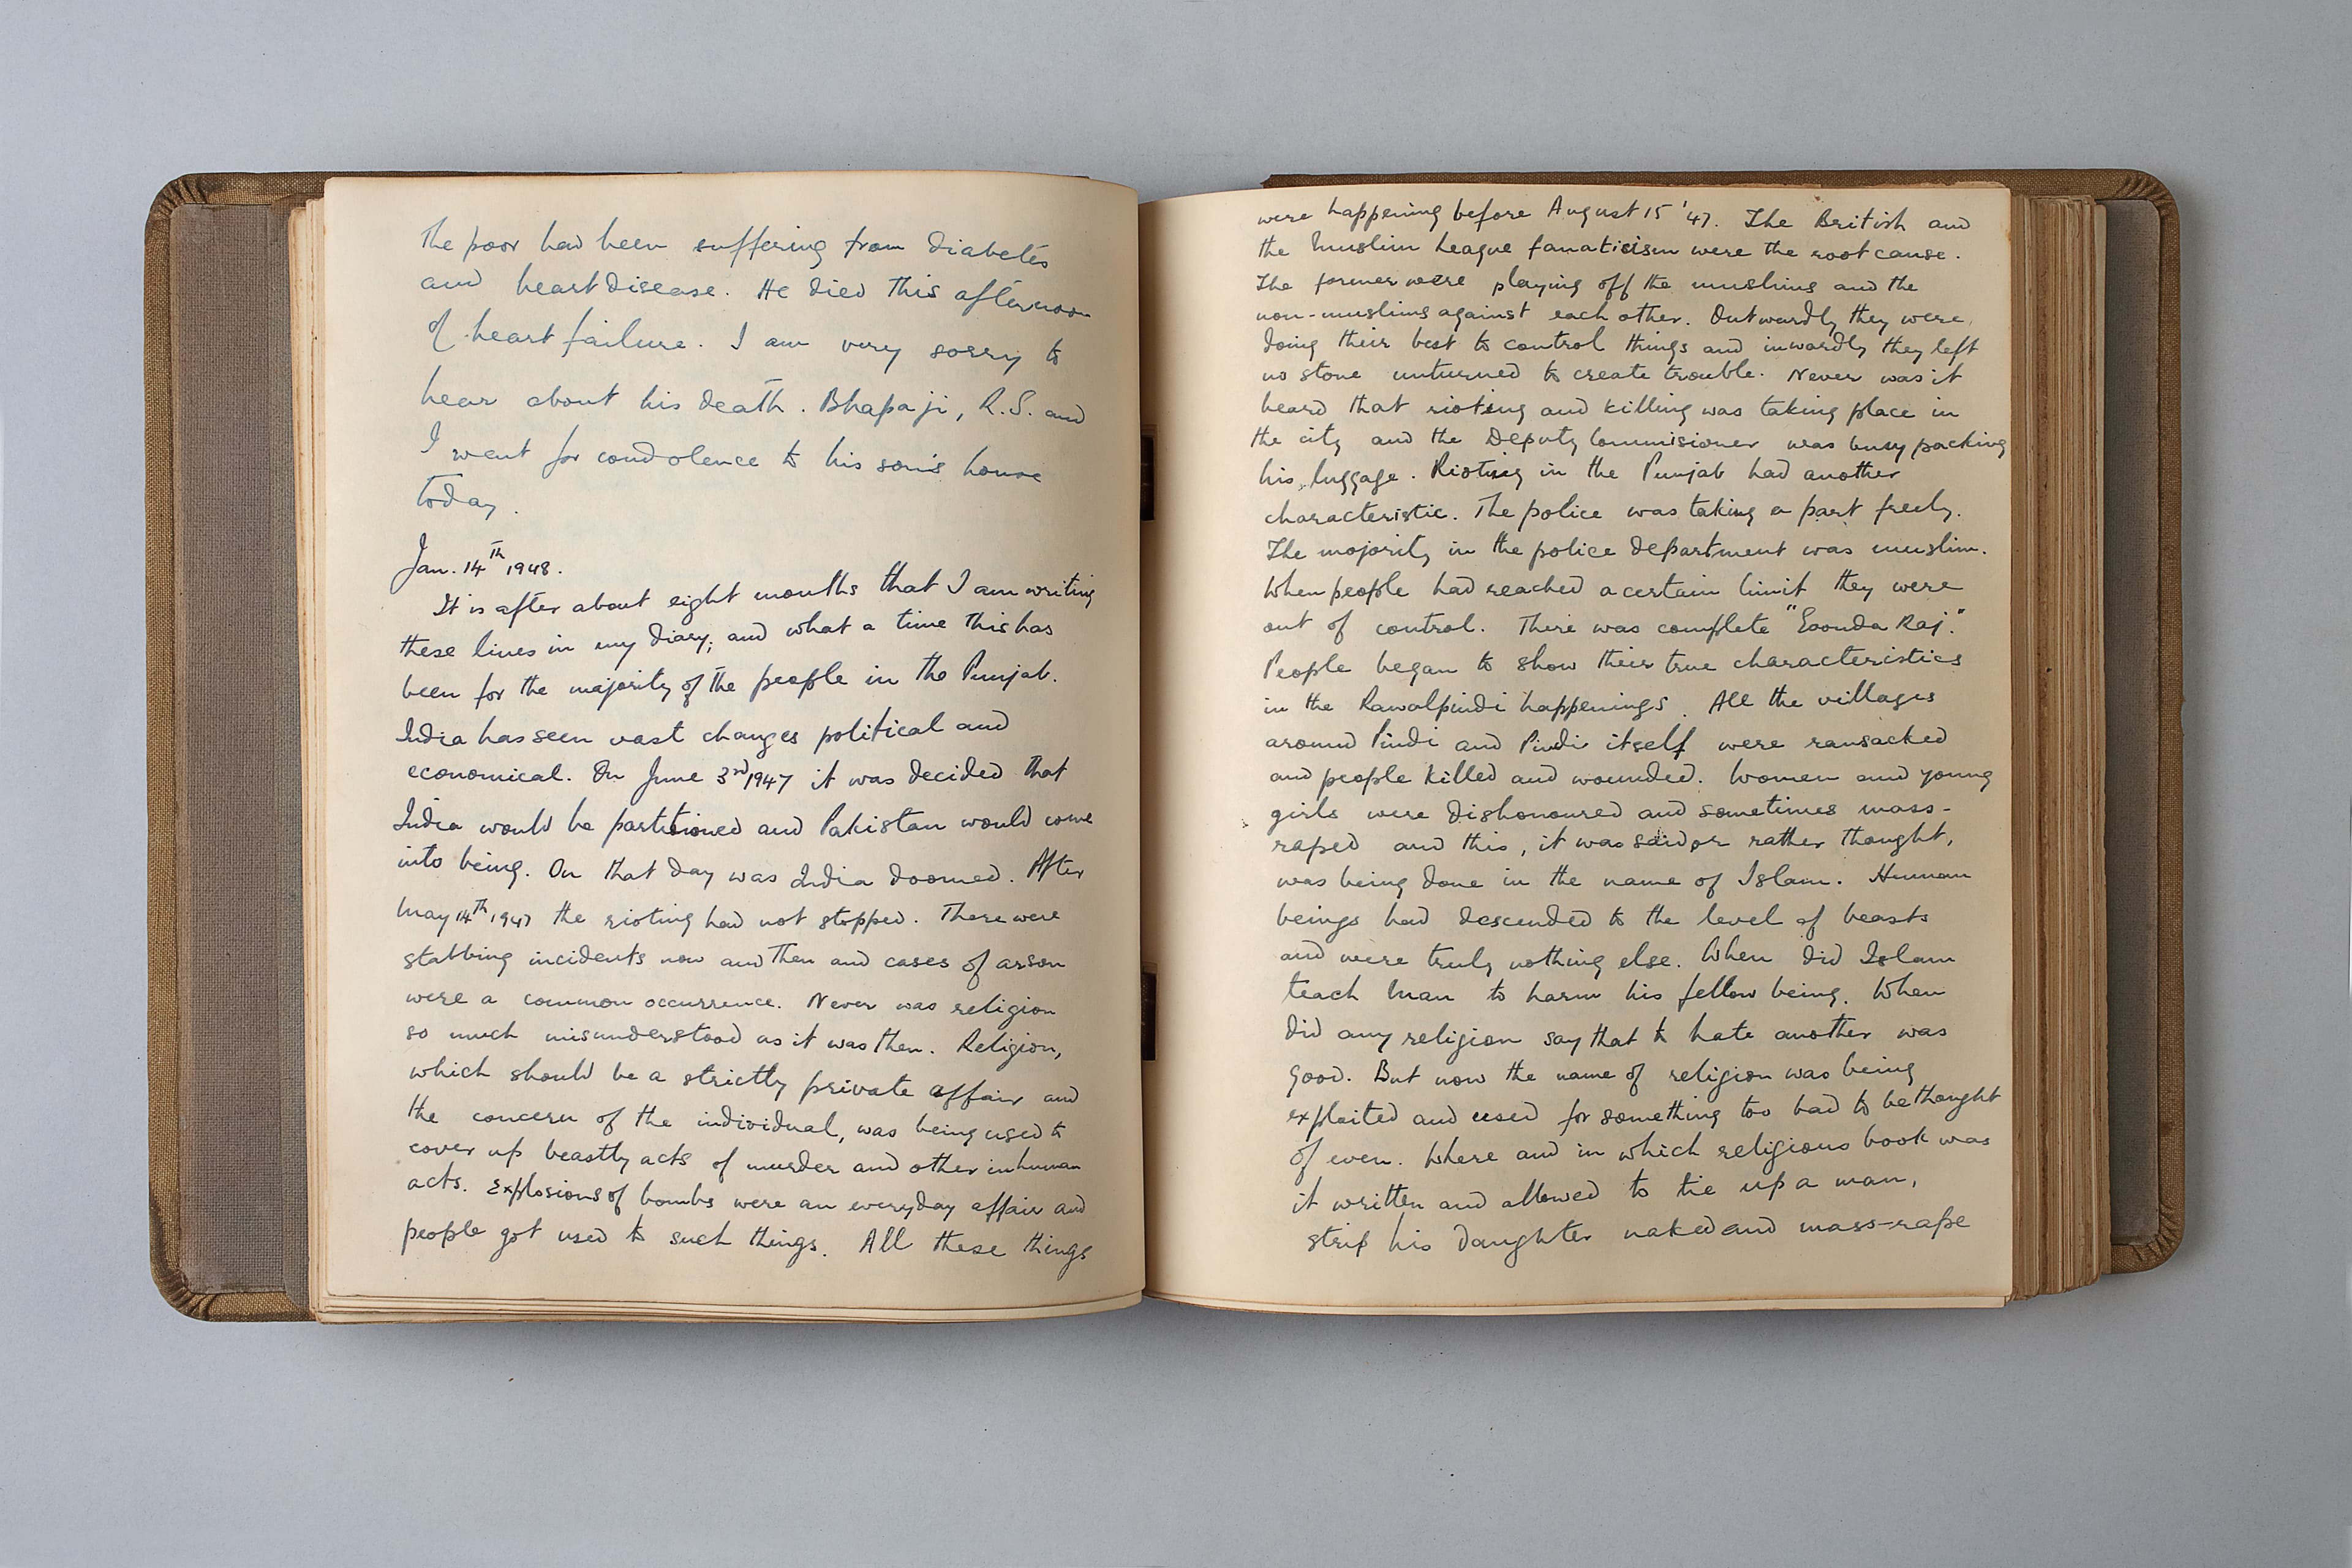 The poor had been suffering from diabetes
and heart disease. He died this afternoon
of heart failure. I am very sorry to
hear about his death. Bhapaji, R.S. and
I went for condolence to his son's house
today.
Jan. 14th 1948.
It is after about eight months that I am writing
these lines in my diary; and what a time this has
been for the majority of the people in the Punjab.
India has seen vast changes political and
economical. On June 3rd 1947 it was decided that
India would be partitioned and Pakistan would come
into being. On that day was India doomed. After
May 14th 1947 the rioting had not stopped. There were
stabbing incidents now and then and cases of arson
were a common occurrence. Never was religion
so much misunderstood as it was then. Religion,
which should be a strictly private affair and
the concern of the individual, was being used to
cover up beastly acts of murder and other inhuman
acts. Explosions of bombs were an everyday affair and
people got used to such things. All these things
were happening before August 15 '47. The British and
the Muslim League fanaticism were the root cause.
The former were playing off the muslims and the
non-muslims against each other. Outwardly they were
doing their best to control things and inwardly they left
no stone unturned to create trouble. Never was it
heard that rioting and killing was taking place in
the city and the Deputy Commisioner was busy packing
his luggage. Rioting in the Punjab had another
characteristic. The police was taking a part freely.
The majority in the police department was muslim.
When people had reached a certain limit they were
out of control. There was complete "Goonda Raj".
People began to show their true characteristics
in the Rawalpindi happenings. All the villages
around Pindi and Pindi itself were ransacked
and people killed and wounded. Women and young
girls were dishonoured and sometimes mass-
raped and this, it was said or rather thought,
was being done in the name of Islam. Human
beings had descended to the level of beasts
and were truly nothing else. When did Islam
teach Man to harm his fellow being. When
did any religion say that to hate another was
good. But now the name of religion was being
exploited and used for something too bad to be thought
of even. Where and in which religious book was
it written and allowed to tie up a man,
strip his daughter naked and mass-rape